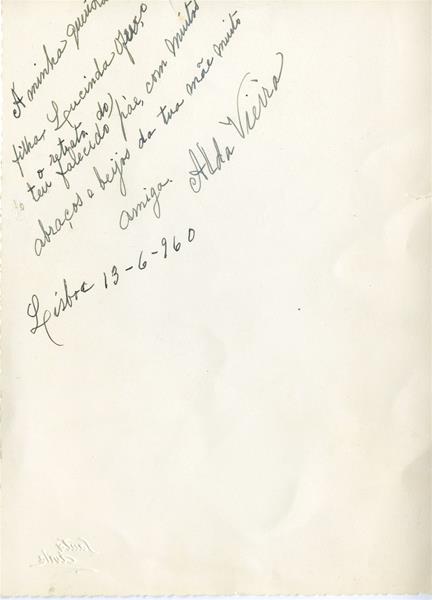 A minha
filha, Lucinda
o retrato do
teu falecido páe, com muitos
abraços e beijos da tua mãe muito
amiga. Alda Vieira
Lisboa 13-6-960